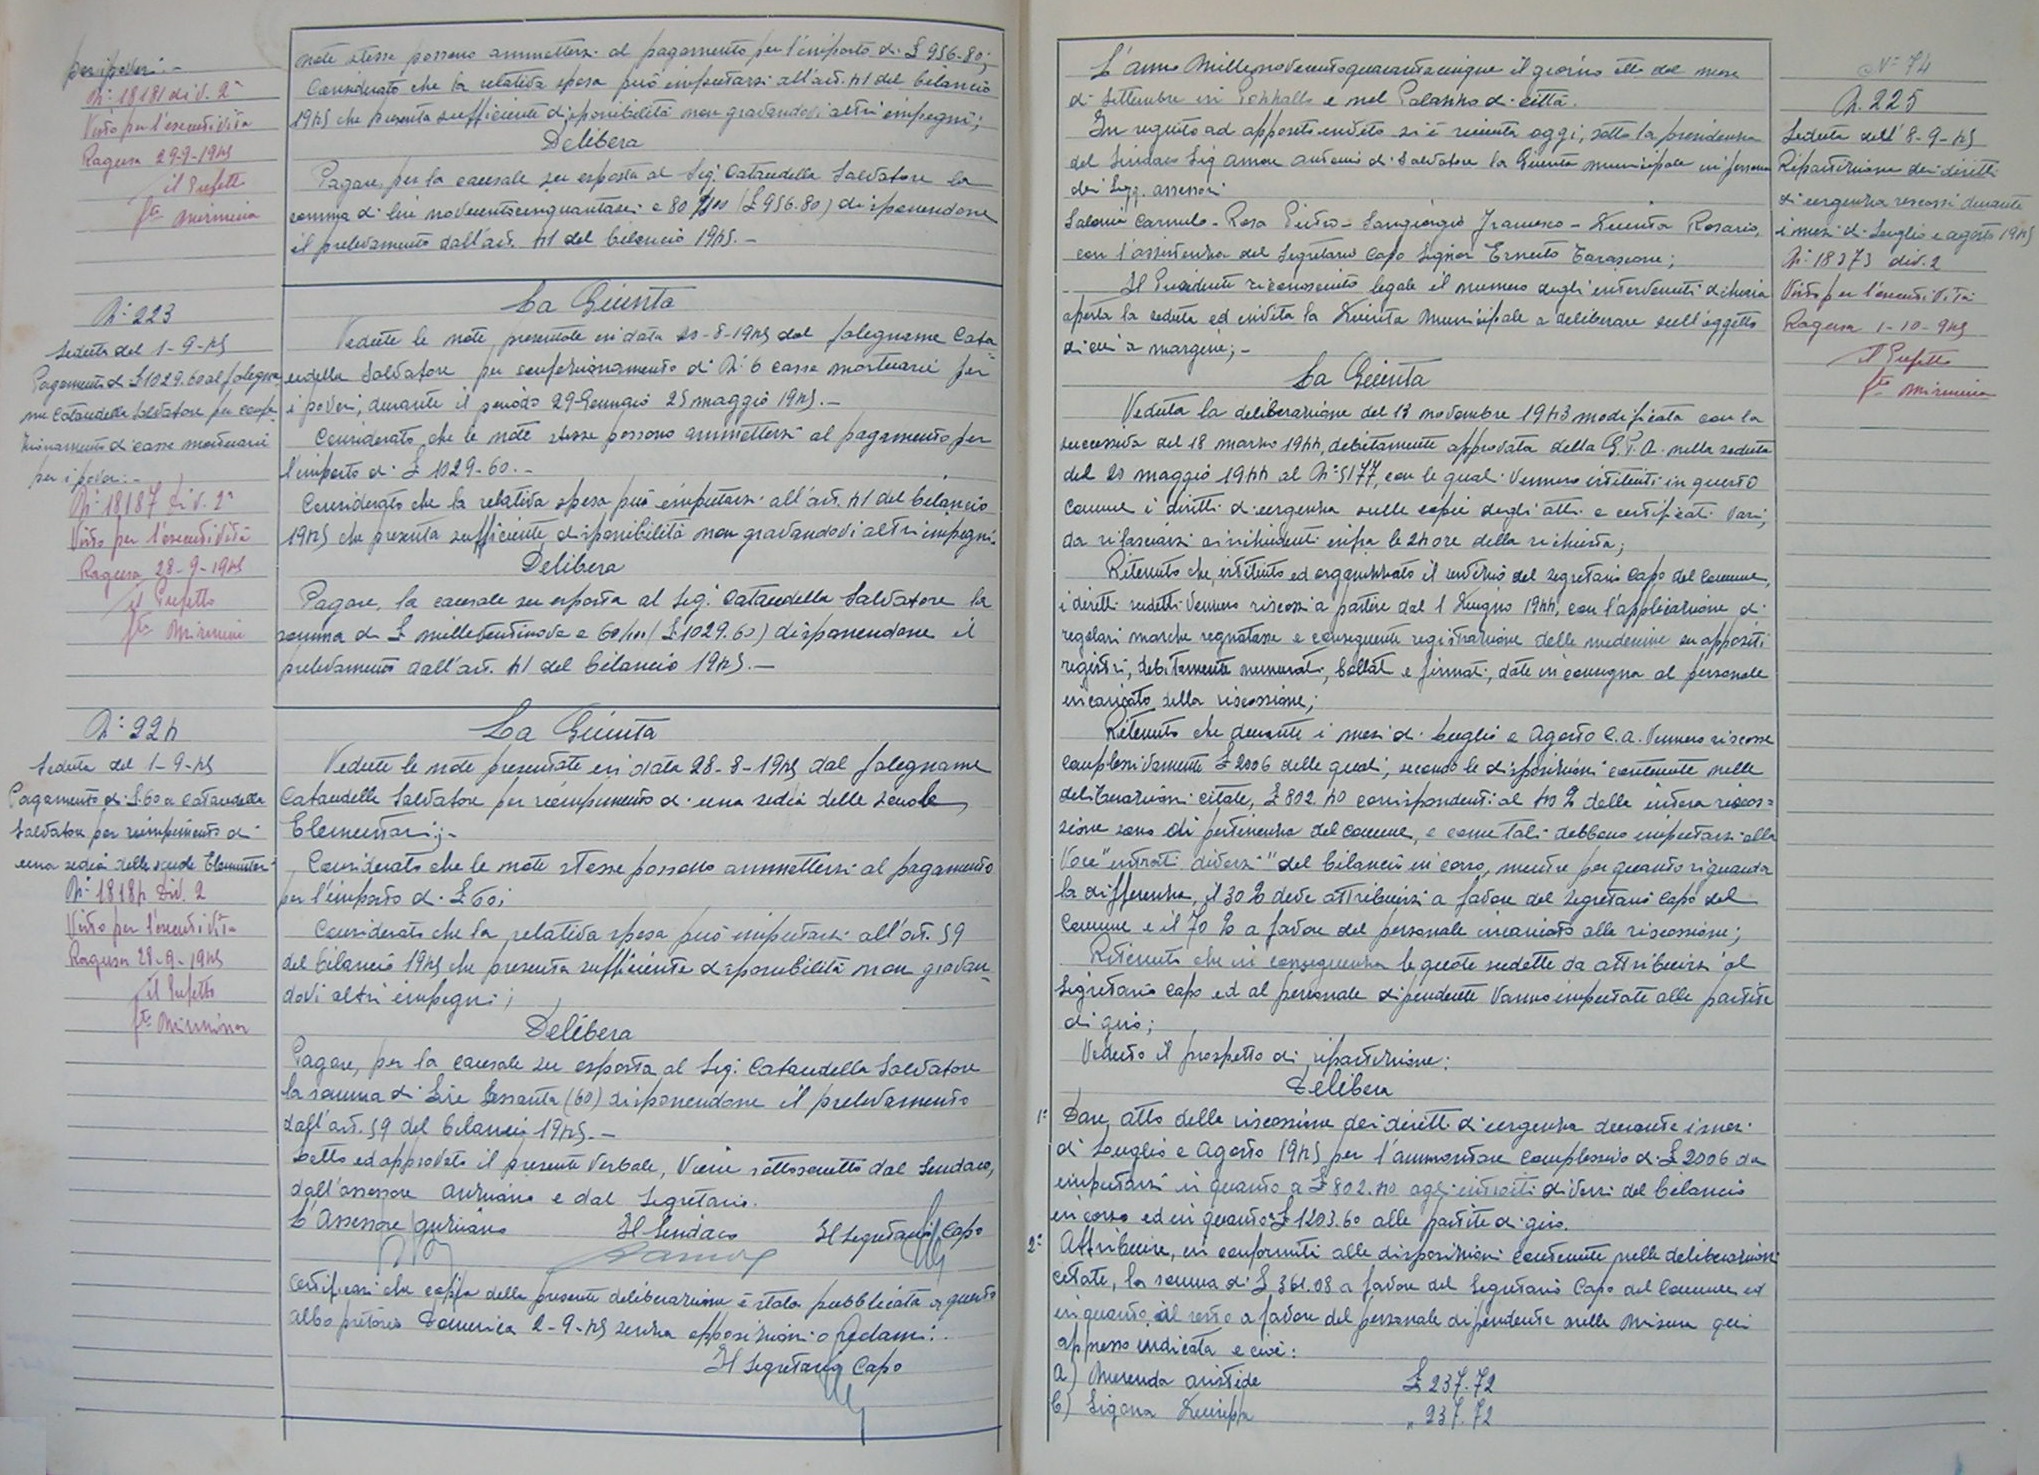 per i poveri.-
N: 18181 div. 2ª
Visto per l'esecutività
Ragusa 29-9-1945
il Prefetto
fto Mirmina
note stesse possono ammettersi al pagamento per l'importo di £ 956.80;
Considerato che la relativa spesa può imputarsi all'art. 41 del bilancio
1945 che presenta sufficiente disponibilità non gravandovi altri impegni;
Delibera
Pagare, per la causale su esposta al Sig. Cataudella Salvatore la
somma di lire novecentocinquantasei e 80/100 (£ 956.80) disponendone
il prelevamento dall'art. 41 del bilancio 1945.-
N: 223
Seduta del 1-9-45
Pagamento di £ 1029.60 al falegna
me Cataudella Salvatore per confe
zionamento di casse mortuarie
per i poveri.-
N: 18187 Div. 2ª
Visto per l'esecutività
Ragusa 28-9-1945
il Prefetto
fto Mirmina
La Giunta
Vedute le note presentate in data 20-8-1945 dal falegname Cata=
udella Salvatore per confezionamento di N: 6 casse mortuarie per
i poveri, durante il periodo 29 Gennaio 25 maggio 1945.-
Considerato che le note stesse possono ammettersi al pagamento per
l'importo di £ 1029.60.-
Considerato che la relativa spesa può imputarsi all'art. 41 del bilancio
1945 che presenta sufficiente disponibilità non gravandovi altri impegni.
Delibera
Pagare, la causale su esposta al Sig. Cataudella Salvatore la
somma di £ milleventinove e 60/100 (£ 1029.60) disponendone il
prelevamento dall'art. 41 del bilancio 1945.-
N: 224
Seduta del 1-9-45
Pagamento di £. 60 a Cataudella
Salvatore per riempimento di
una sedia delle scuole Elementari
N: 18184 Div. 2
Visto per l'esecutività
Ragusa 28-9-1945
il Prefetto
fto Mirmina
La Giunta
Vedute le note presentate in data 28-8-1945 dal falegname
Cataudella Salvatore per riempimento di una sedia delle scuole
Elementari;-
Considerato che le note stesse possono ammettersi al pagamento
per l'importo di £ 60;
Considerato che la relativa spesa può imputarsi all'art. 59
del bilancio 1945 che presenta sufficiente disponibilità non gravan-
dovi altri impegni;
Delibera
Pagare, per la causale su esposta al Sig. Cataudella Salvatore
la somma di Lire Sessanta (60) disponendone il prelevamento
dall'art. 59 del bilancio 1945.-
Letto ed approvato il presente verbale, viene sottoscritto dal Sindaco,
dall'assessore anziano e dal Segretario.
L'Assessore anziano Il Sindaco Il Segretario Capo
Certificasi che copia della presente deliberazione è stata pubblicata a questo
albo pretorio Domenica 2-9-45 senza opposizioni o reclami.
Il Segretario Capo
L'anno Millenovecentoquarantacinque il giorno otto del mese
di Settembre in Pozzallo e nel Palazzo di città.
In seguito ad apposito invito si è riunita oggi, sotto la presidenza
del Sindaco Sig. Amore Antonio di Salvatore la Giunta municipale in persona
dei Sigg. assessori
Salonia Carmelo - Rosa Pietro - Sangiorgio Francesco - Giunta Rosario,
con l'assistenza del Segretario Capo Signor Ernesto Tarascone;
Il Presidente riconosciuto legale il numero degli intervenuti dichiara
aperta la seduta ed invita la Giunta Municipale a deliberare sull'oggetto
di cui a margine;-
La Giunta
Veduta la deliberazione del 13 novembre 1943 modificata con la
successiva del 18 marzo 1944, debitamente approvata dalla G.P.A. nella seduta
del 20 maggio 1944 al N: 5177, con le quali vennero istituiti in questo
Comune i diritti di urgenza sulle copie degli atti e certificati vari,
da rilasciarsi ai richiedenti infra le 24 ore della richiesta;
Ritenuto che, istituito ed organizzato il servizio dal Segretario Capo del Comune,
i diritti sudetti vennero riscossi a partire dal 1 Giugno 1944, con l'applicazione di
regolari marche segnatasse e conseguente registrazione delle medesime su appositi
registri, debitamente numerati, bollati e firmati, date in consegna al personale
incaricato della riscossione;
Ritenuto che durante i mesi di Luglio e Agosto c.a. vennero riscosse
complessivamente £ 2006 delle quali, secondo le disposizioni contenute nelle
deliberazioni citate, £ 802.40 corrispondenti al 40 % della intera riscos=
sione sono di pertinenza del Comune, e come tali debbono imputarsi alla
voce "introiti diversi" del bilancio in corso, mentre per quanto riguarda
la differenza, il 30 % deve attribuirsi a favore del Segretario Capo del
Comune e il 70 % a favore del personale incaricato alla riscossione;
Ritenuto che in conseguenza le quote sudette da attribuirsi al
Segretario Capo ed al personale dipendente vanno imputate alle partite
di giro;
Veduto il prospetto di ripartizione:
Delibera
1° Dare atto della riscossione dei diritti di urgenza durante i mesi
di Luglio e Agosto 1945 per l'ammontare complessivo di £ 2006 da
imputarsi in quanto a £ 802.40 agli introiti diversi del bilancio
in corso ed in quanto a £ 1203.60 alle partite di giro.
2° Attribuire, in conformità alle disposizioni contenute nelle deliberazioni
citate, la somma di £ 361.08 a favore del Segretario Capo del Comune ed
in quanto al resto a favore del personale dipendente nella misura qui
appresso indicata e cioè:
a) Merenda Aristide £ 237.72
b) Sigona Giuseppa " 237.72
N: 74
N. 225
Seduta dell'8-9-45
Ripartizione dei diritti
di urgenza riscossi durante
i mesi di Luglio e agosto 1945
N: 18373 div. 2
Visto per l'esecutività
Ragusa 1-10-945
il Prefetto
fto Mirmina